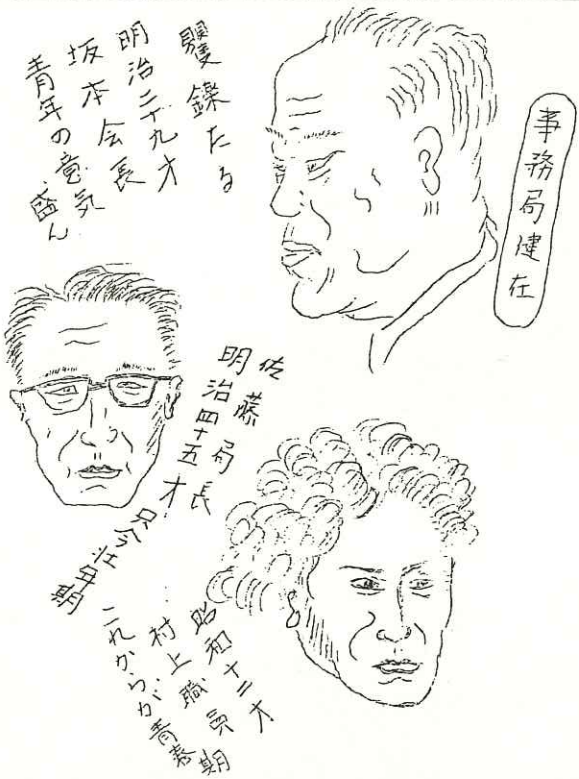 事務局健在
矍鑠たる
明治二十九才
坂本会長
青年の意気
盛ん
佐藤局長
明治四十五才
只今壮年期
昭和十二才
村上職員
これからが青春期